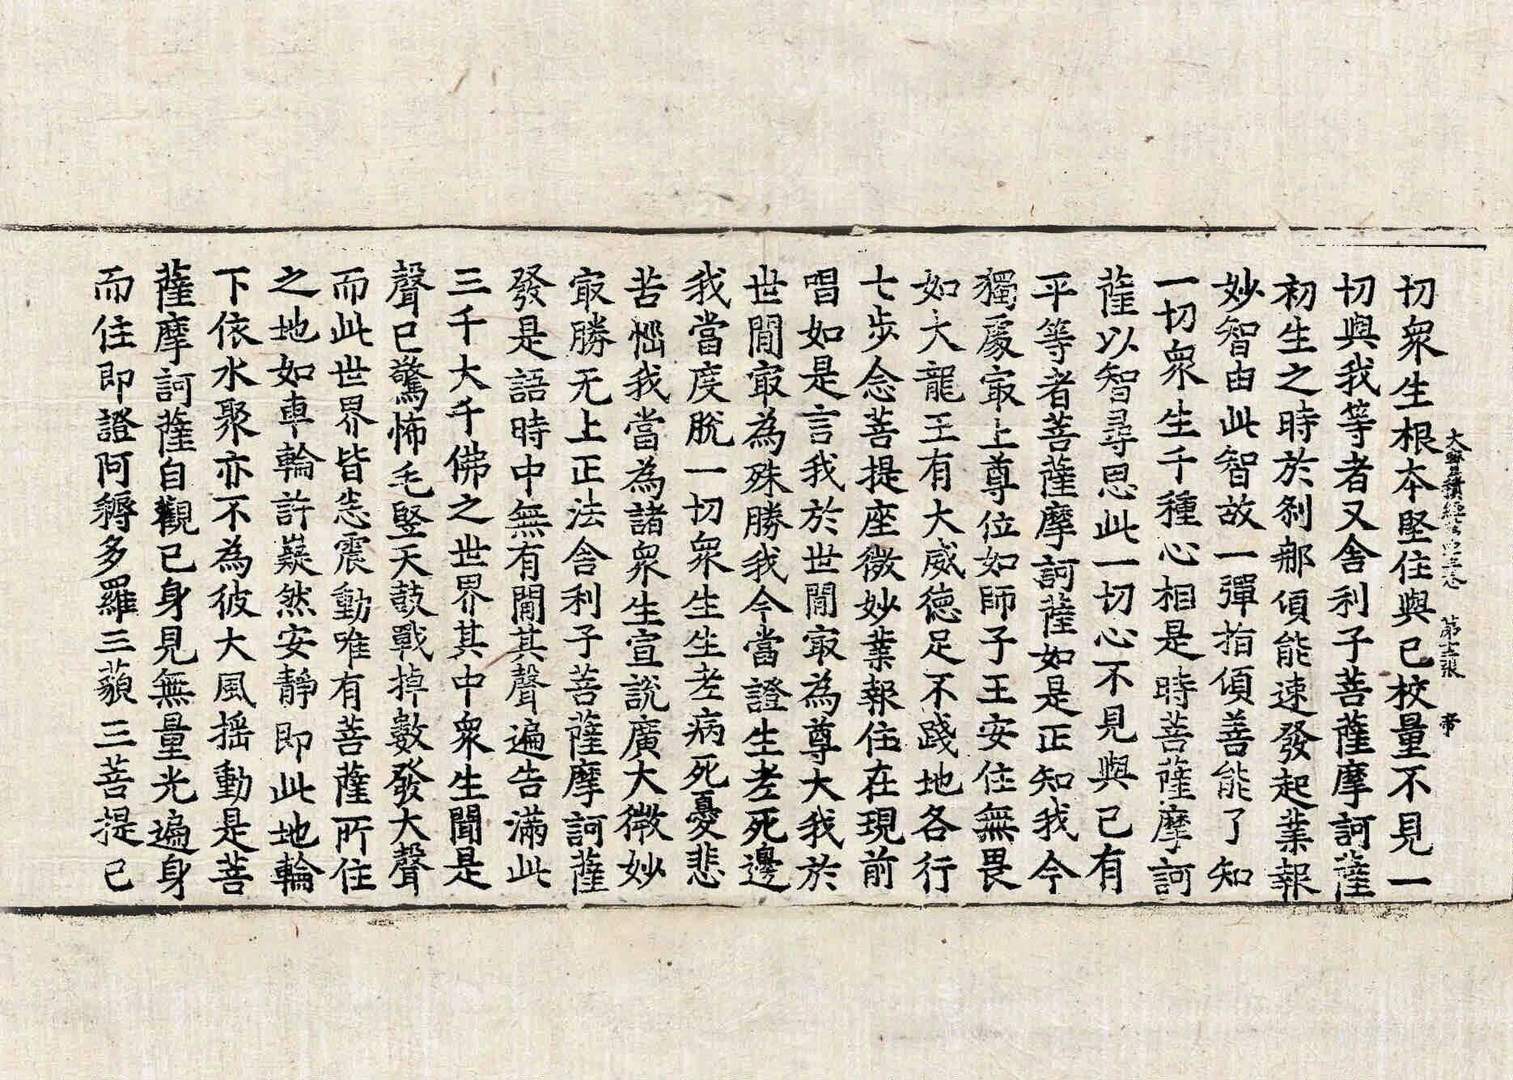 大寶積經第 卷 第 張 帝
切衆生根本堅住與己校量不見一
切與我等者又舍利子菩薩摩訶薩
初生之時於剎那傾能速發起業報
妙智由此智故一彈指傾善能了知
一切衆生千種心相是時菩薩摩訶
薩以智尋思此一切心不見與己有
平等者菩薩摩訶薩如是正知我今
獨處冣上尊位如師子王安住無畏
如大龍王有大威德足不踐地各行
七步念菩提座微妙業報住在現前
唱如是言我於世間冣為尊大我於
世間冣為殊勝我今當證生老死邊
我當度脫一切衆生生老病死憂悲
苦惱我當為諸衆生宣說廣大微妙
冣勝无上正法舍利子菩薩摩訶薩
發是語時中無有間其聲遍告滿此
三千大千佛之世界其中衆生聞是
聲已驚怖毛竪天鼓戰掉數發大聲
而此世界皆悉震動唯有菩薩所住
之地如車輪許嶷然安靜即此地輪
下依水聚亦不為彼大風搖動是菩
薩摩訶薩自觀己身見無量光遍身
而住即證阿耨多羅三藐三菩提已